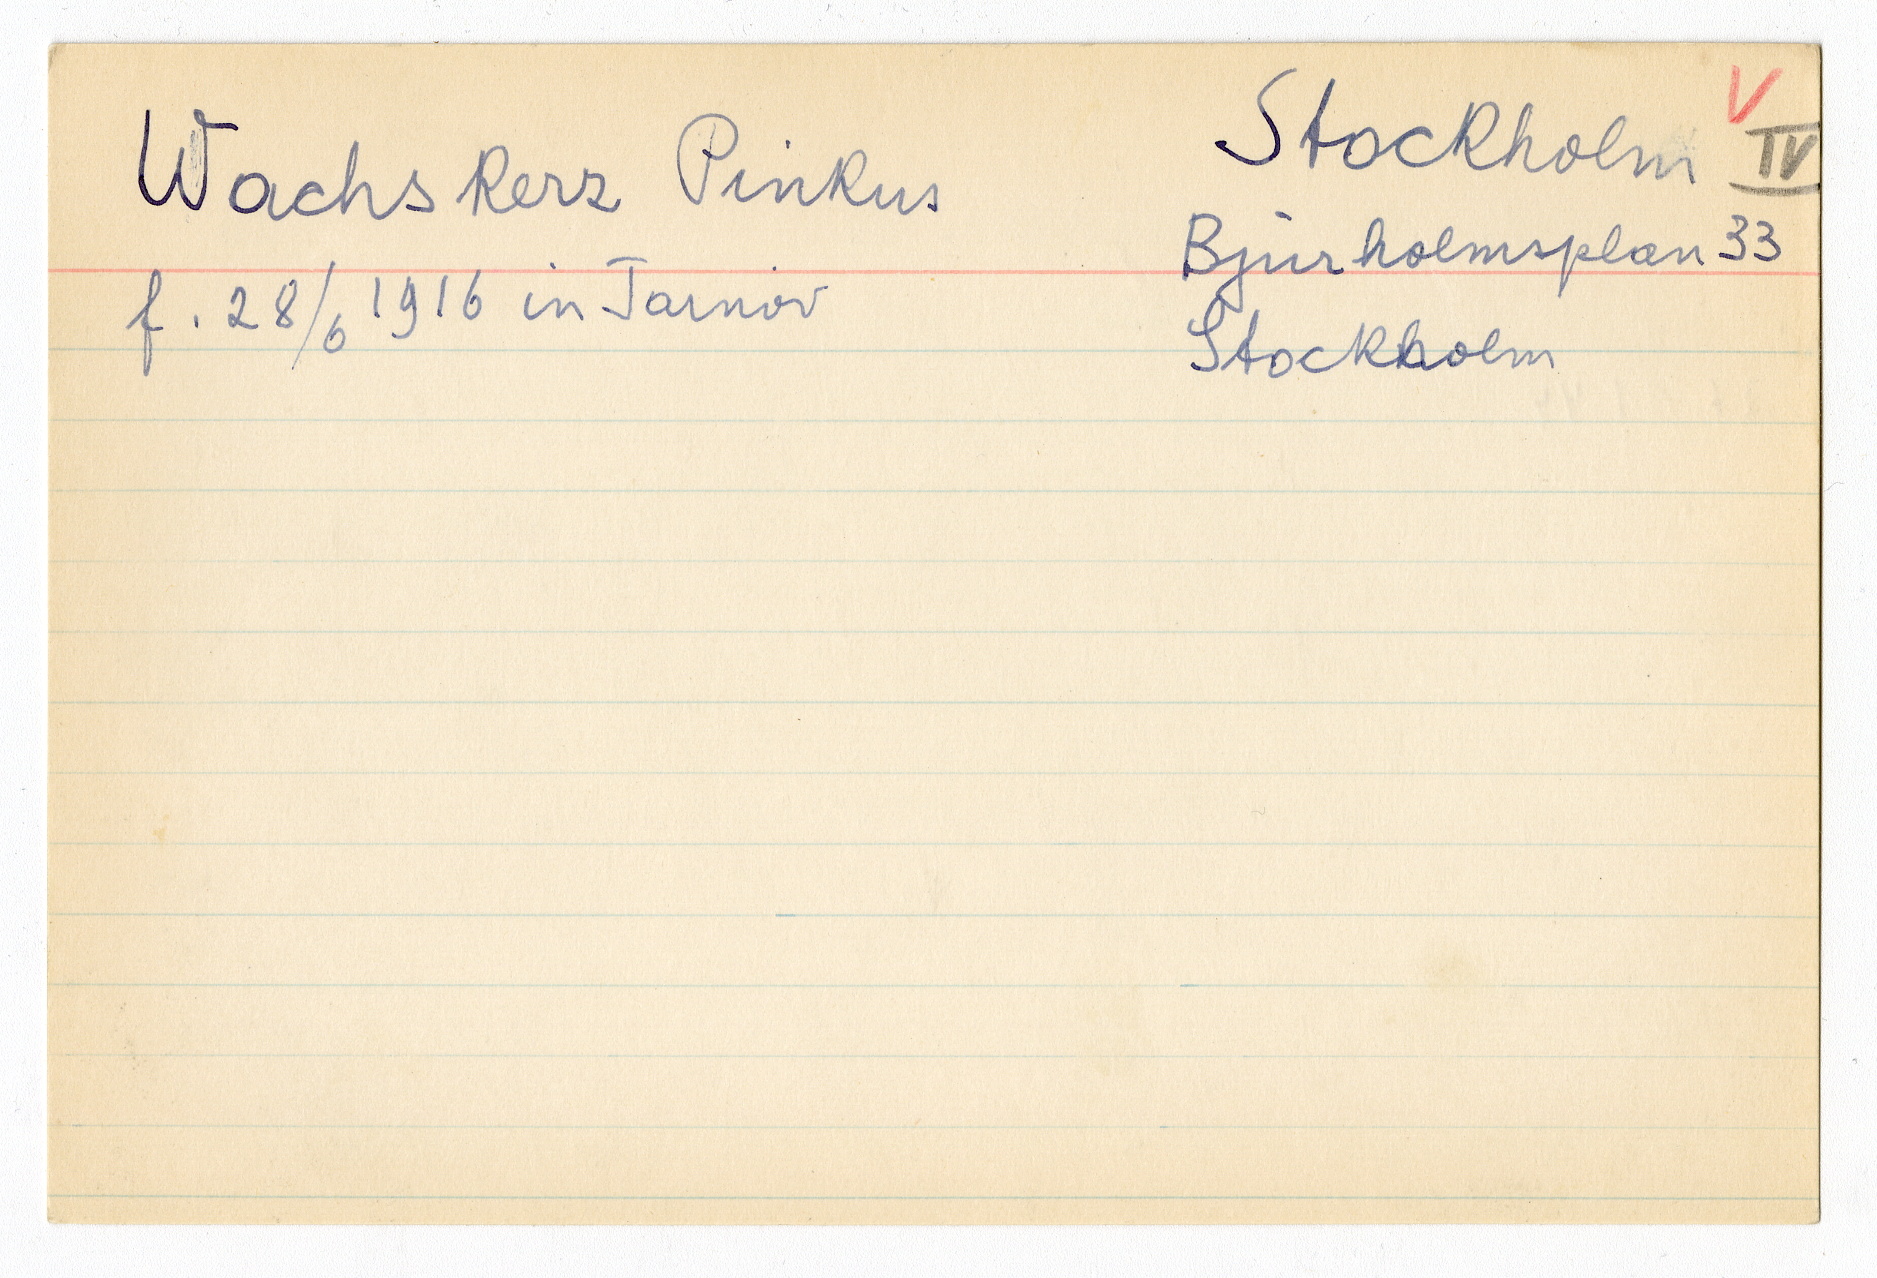 Wachskerz Pinkus
f. 28/6 1916 in Tarnov
Stockholm
Bjurholmsplan 33
Stockholm
V
IV